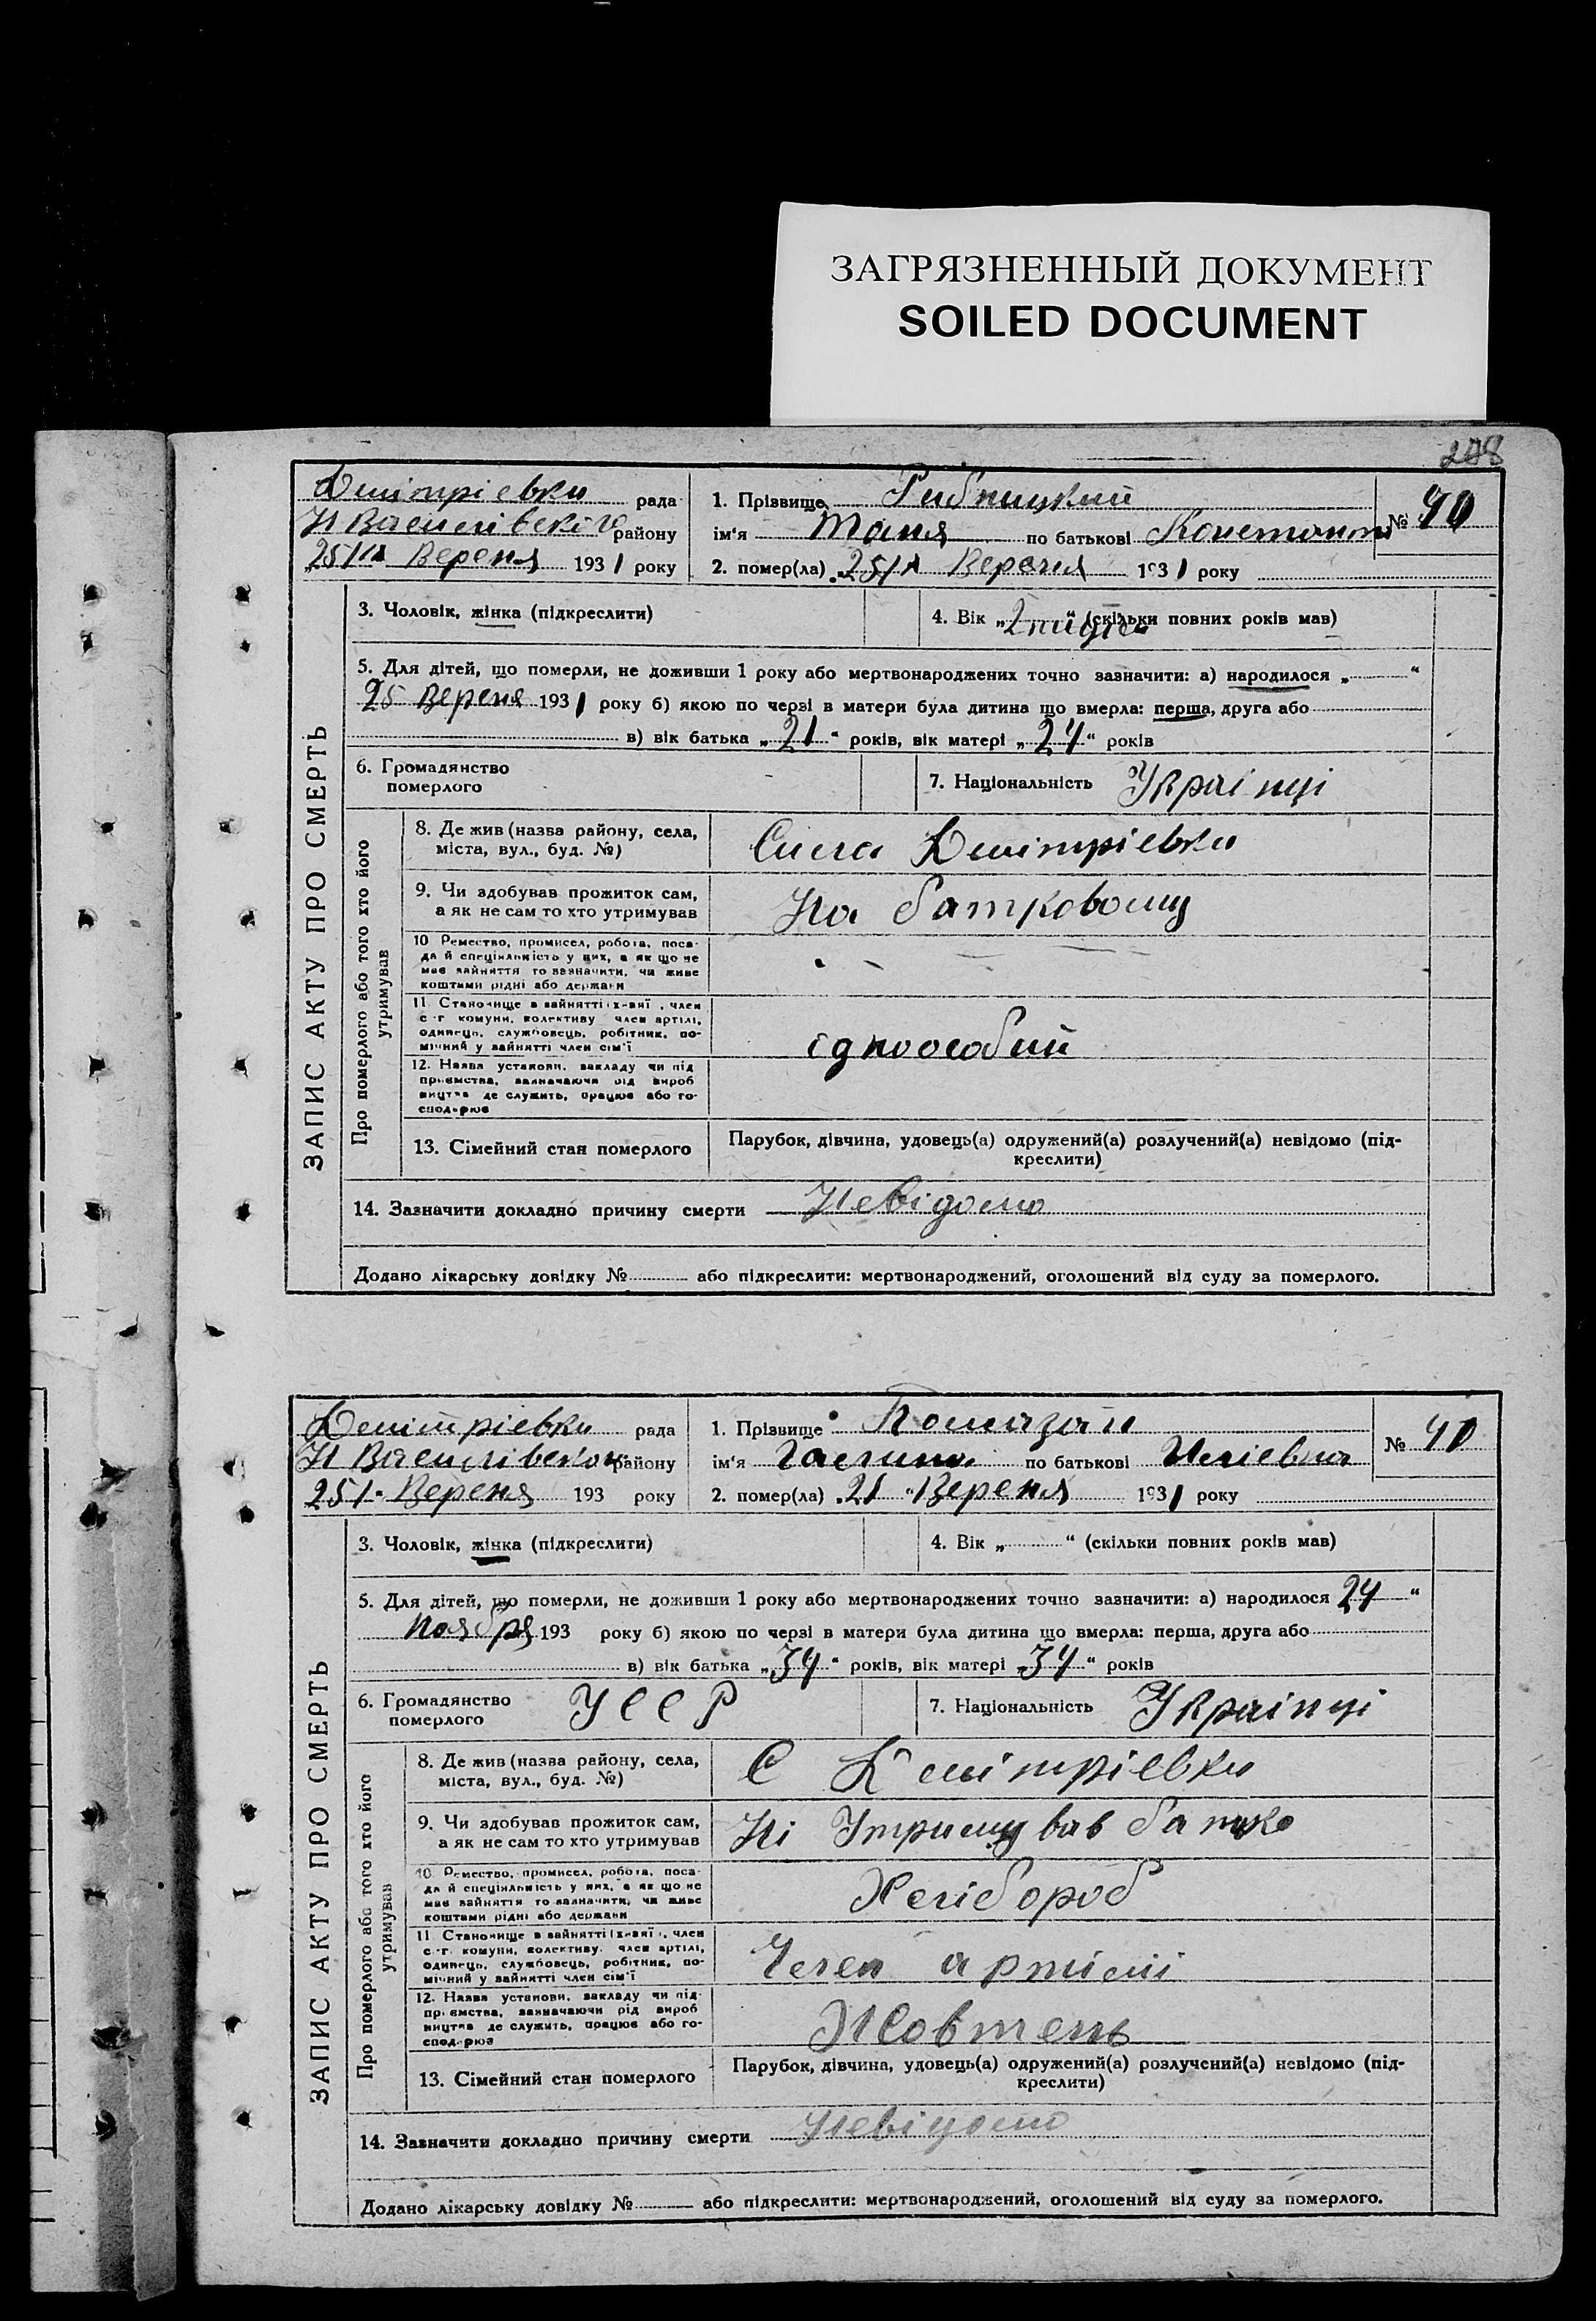 ЗАГРЯЗНЕННЫЙ ДОКУМЕНТ
SOILED DOCUMENT
ЗАПИС АКТУ ПРО СМЕРТЬ
Дмітріевка рада
Н Василівского району
25/ Вереня 1931 року
1. Прізвище Рибницкий
ім'я Таня по батькові Констант
№ 40
2. помер(ла) 25/ Вереня 1931 року
3. Чоловік, жінка (підкреслити)
4. Вік „ 2 “ (скільки повних років мав)
5. Для дітей, що померли, не доживши 1 року або мертвонароджених точно зазначити: а) народилося „ “
25 Вереня 1931 року б) якою по черзі в матери була дитина що вмерла: перша, друга або
в) вік батька „21“ років, вік матері „24“ років
6. Громадянство
померлого
7. Національність Украінці
Про померлого або того хто його
утримував
8. Де жив (назва району, села,
міста, вул., буд. №)
Села Дмітріевка
9. Чи здобував прожиток сам,
а як не сам то хто утримував
На батковому
10 Ремество, промисел, робота, поса-
да й спеціяльність у них, а як що не
має зайняття то зазначити, чи живе
коштами рідні або держави
11 Становище в зайнятті, член
с-г комуни, колективу член артілі,
одинець, службовець, робітник, по-
мічний у зайнятті член сім'ї
одноособий
12. Назва установи, закладу чи під
приємства, зазначаючи рід вироб
ництва де служить, працює або го-
сподарює
13. Сімейний стан померлого
Парубок, дівчина, удовець(а) одружений(а) розлучений(а) невідомо (під-
креслити)
14. Зазначити докладно причину смерти Невідомо
Додано лікарську довідку № або підкреслити: мертвонароджений, оголошений від суду за померлого.
ЗАПИС АКТУ ПРО СМЕРТЬ
Дмітріевка рада
Н Василівского району
25/ Вереня 193 року
1. Прізвище Помазан
ім'я Галина по батькові Ілієвна
№ 41
2. помер(ла) 21 Вереня 1931 року
3. Чоловік, жінка (підкреслити)
4. Вік „ “ (скільки повних років мав)
5. Для дітей, що померли, не доживши 1 року або мертвонароджених точно зазначити: а) народилося 24 “
Ноября 193 року б) якою по черзі в матери була дитина що вмерла: перша, друга або
в) вік батька „34“ років, вік матері „34“ років
6. Громадянство
померлого
УССР
7. Національність Украінці
Про померлого або того хто його
утримував
8. Де жив (назва району, села,
міста, вул., буд. №)
С Дмітріевка
9. Чи здобував прожиток сам,
а як не сам то хто утримував
Ні Утримував батько
10. Ремество, промисел, робота, поса-
да й спеціяльність у них, а як що не
має зайняття то зазначити, чи живе
коштами рідні або держави
Хлібороб
11 Становище в зайнятті, член
с-г. комуни, колективу. член артілі,
одинець, службовець, робітник, по-
мічний у зайнятті член сім'ї
Член артілі
12. Назва установи, закладу чи під-
приємства, зазначаючи рід вироб
ництва де служить, працює або го-
сподарює
Жовтень
13. Сімейний стан померлого
Парубок, дівчина, удовець(а) одружений(а) розлучений(а) невідомо (під-
креслити)
14. Зазначити докладно причину смерти Невідомо
Додано лікарську довідку № або підкреслити: мертвонароджений, оголошений від суду за померлого.